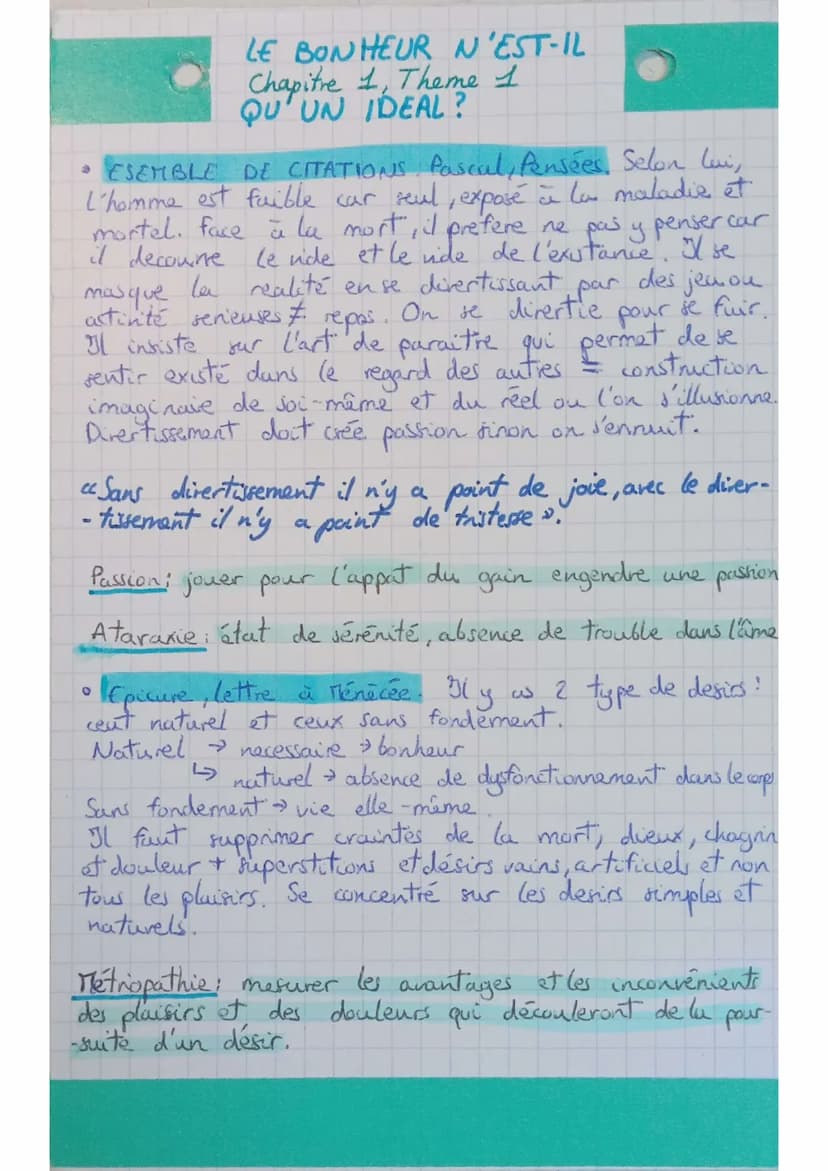 LE BONHEUR N'EST-IL
Chapitre 1, Theme 1
QU'UN IDEAL ?
• ESEMBLE DE CITATIONS. Pascal, Pensées. Selon lui,
L'homme est faible car seul, exposé à la maladie et
mortel. face à la mort, il préfere ne pas y penser car
il decouvre le vide et le vide de l'existance. Il se
masque la realité en se divertissant par des jeu ou
astivité serieuses ≠ repos. On se divertie pour se fuir.
Il insiste sur l'art de paraitre qui permet de se
sentir existé dans le regard des autres = construction
imaginaie de soi-même et du réel ou l'on s'illusionne.
Divertissement doit crée passion sinon on s'ennuit.
"Sans divertissement il n'y a point de joie, avec le diver-
-tissement il n'y a point de tristesse".
Passion: jouer pour l'appat du gain engendre une passion
Ataraxie: état de sérénité, absence de trouble dans l'âme
• Epicure, lettre à Ménécée. Il y as 2 type de desirs:
ceut naturel et ceux sans fondement.
Naturel → necessaire → bonheur
↳ naturel → absence de dysfonctionnement dans le corps
Sans fondement → vie elle-même.
Il faut supprimer craintes de la mort, dieux, chagrin
et douleur + superstitions et désirs vains, artificiels et non
tous les plaisirs. Se concentré sur les desirs simples et
naturels.
Métriopathie: mesurer les avantages et les inconvénients
des plaisirs et des douleurs qui découleront de la pour-
-suite d'un désir.